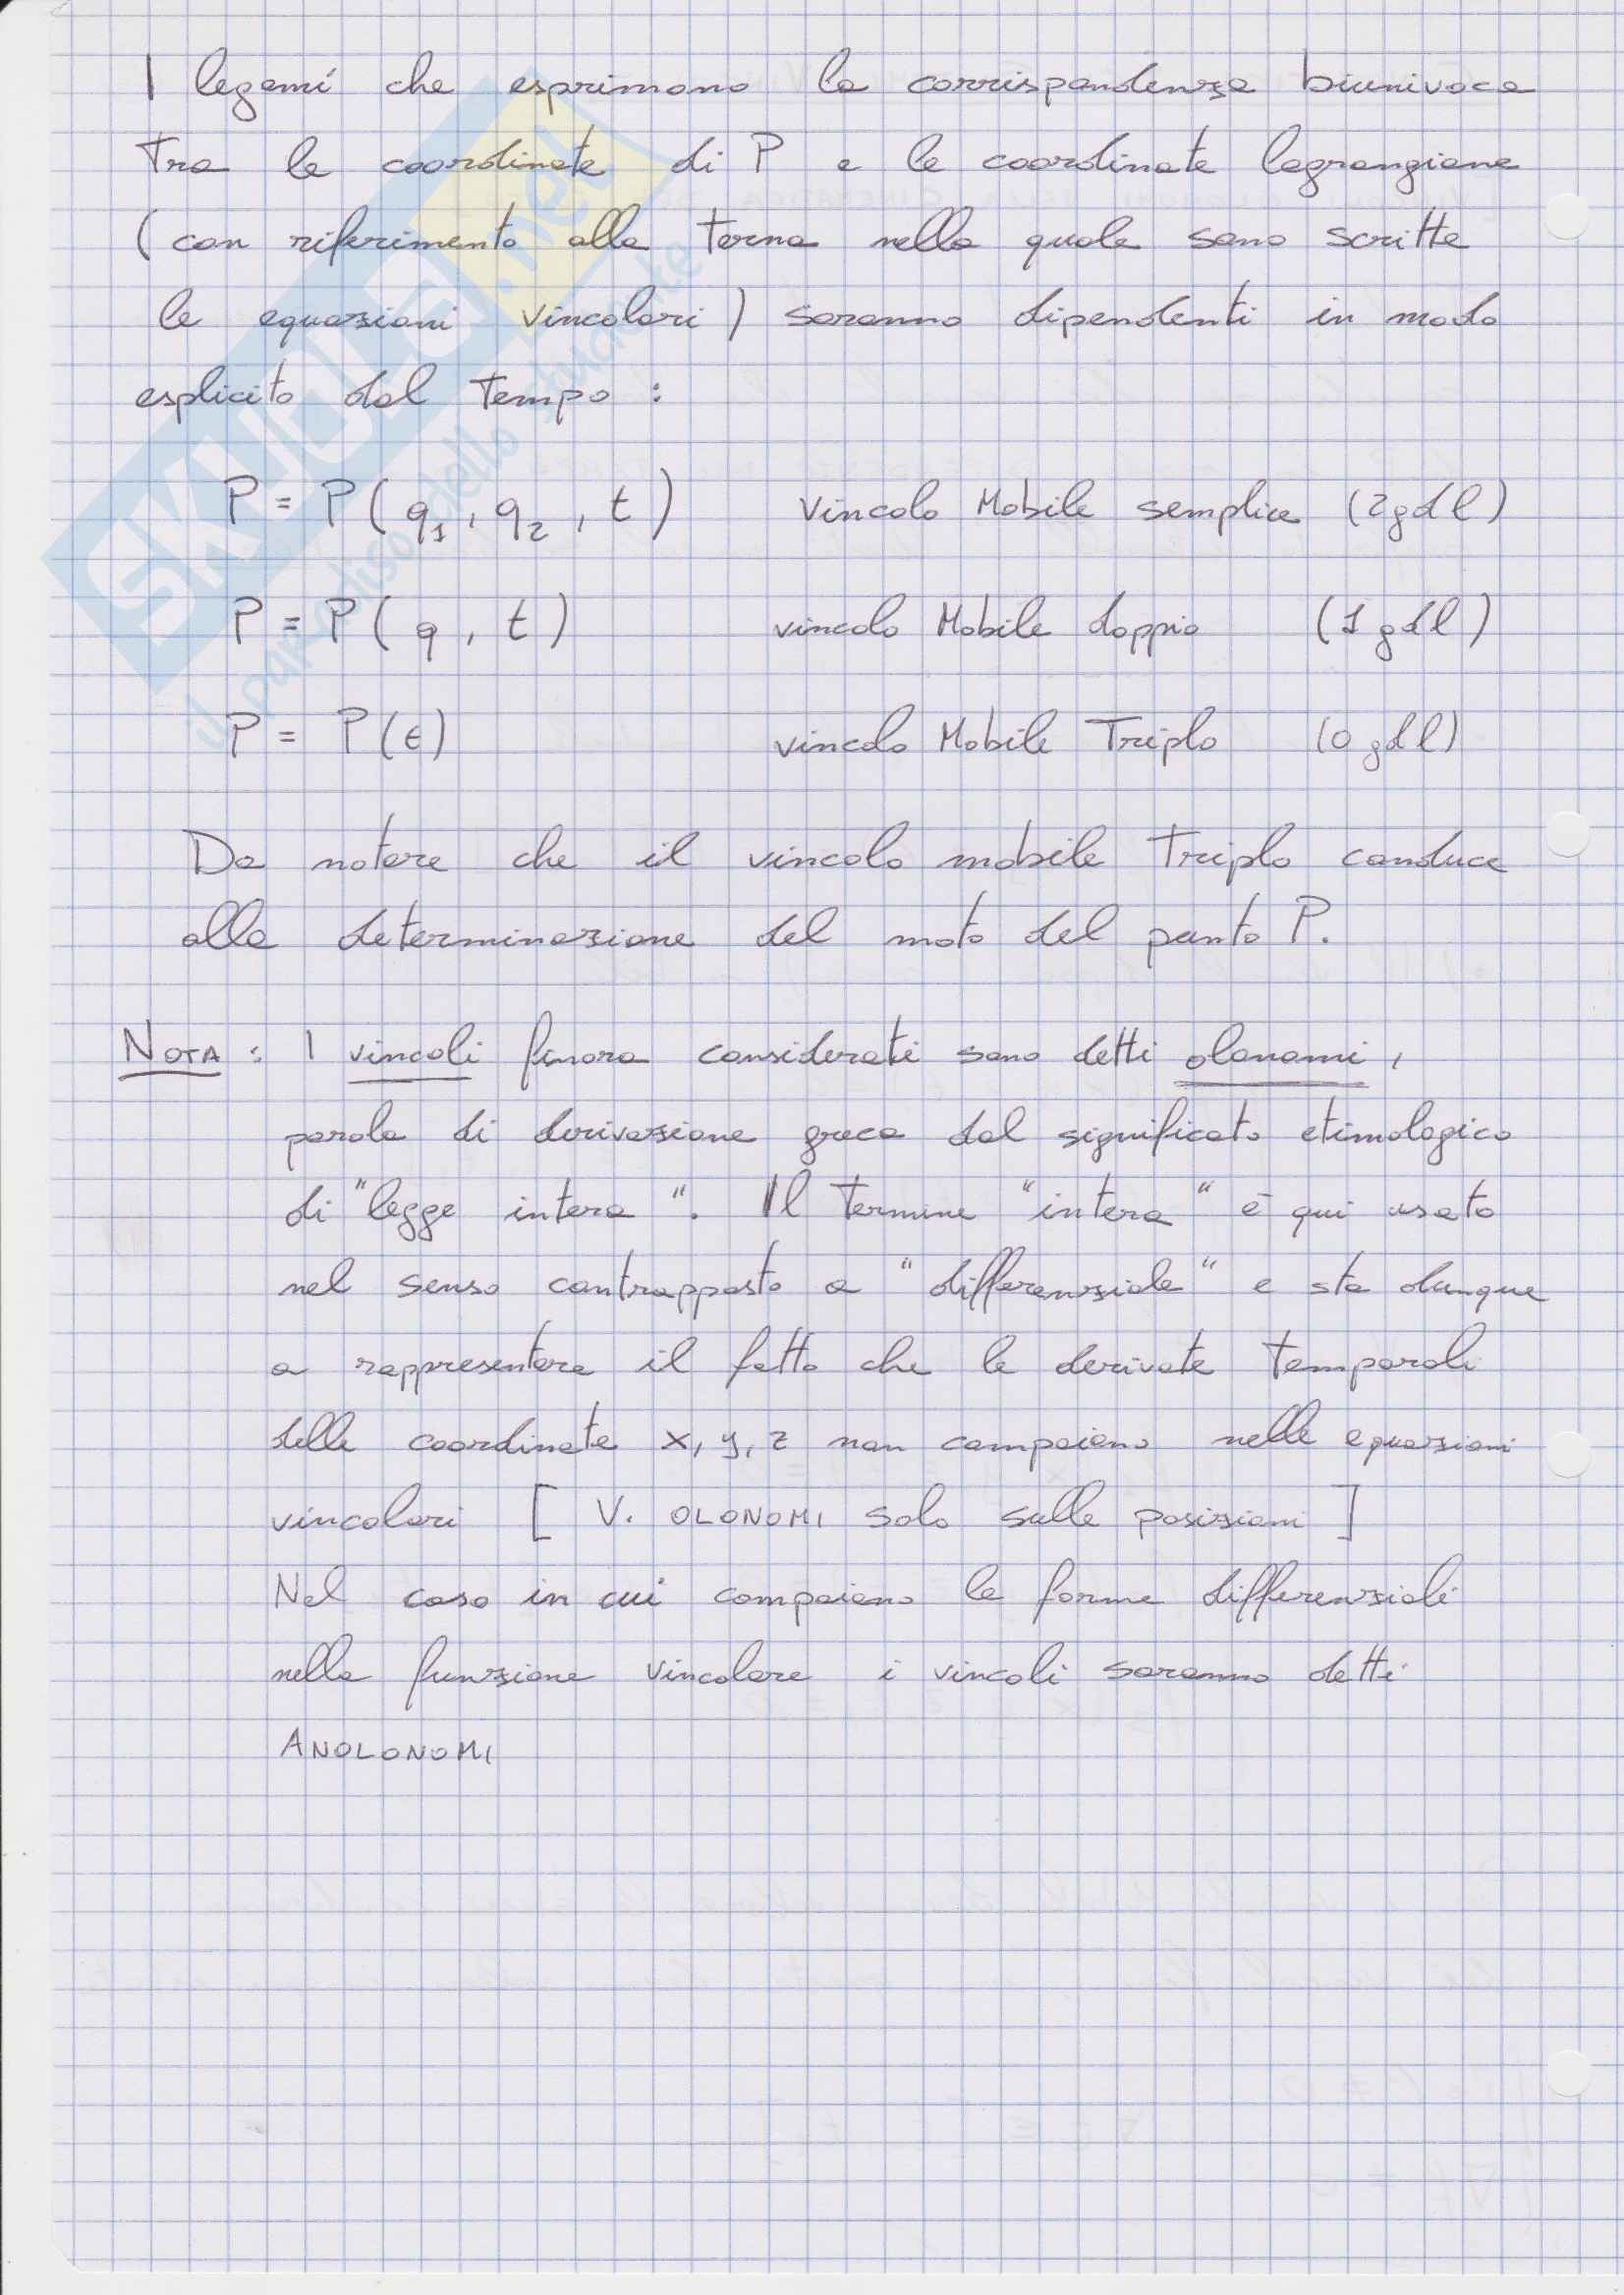 I legami che esprimono la corrispondenza biunivoca
tra le coordinate di P e le coordinate lagrangiane
(con riferimento alla terna nella quale sono scritte
le equazioni vincolari) saranno dipendenti in modo
esplicito dal tempo :
P = P ( q1 , q2 , t ) vincolo Mobile semplice (2 gdl)
P = P ( q , t ) vincolo Mobile doppio (1 gdl)
P = P (t) vincolo Mobile Triplo (0 gdl)
Da notare che il vincolo mobile Triplo conduce
alla determinazione del moto del punto P.
NOTA : I vincoli finora considerati sono detti olonomi ,
parola di derivazione greca dal significato etimologico
di "legge intera". Il termine "intera" è qui usato
nel senso contrapposto a "differenziale" e sta dunque
a rappresentare il fatto che le derivate temporali
delle coordinate x, y, z non compaiano nelle equazioni
vincolari [ V. OLONOMI solo sulle posizioni ]
Nel caso in cui compaiano le forme differenziali
nella funzione vincolare i vincoli saranno detti
ANOLONOMI
SKUOLA.net
il paradiso dello studente